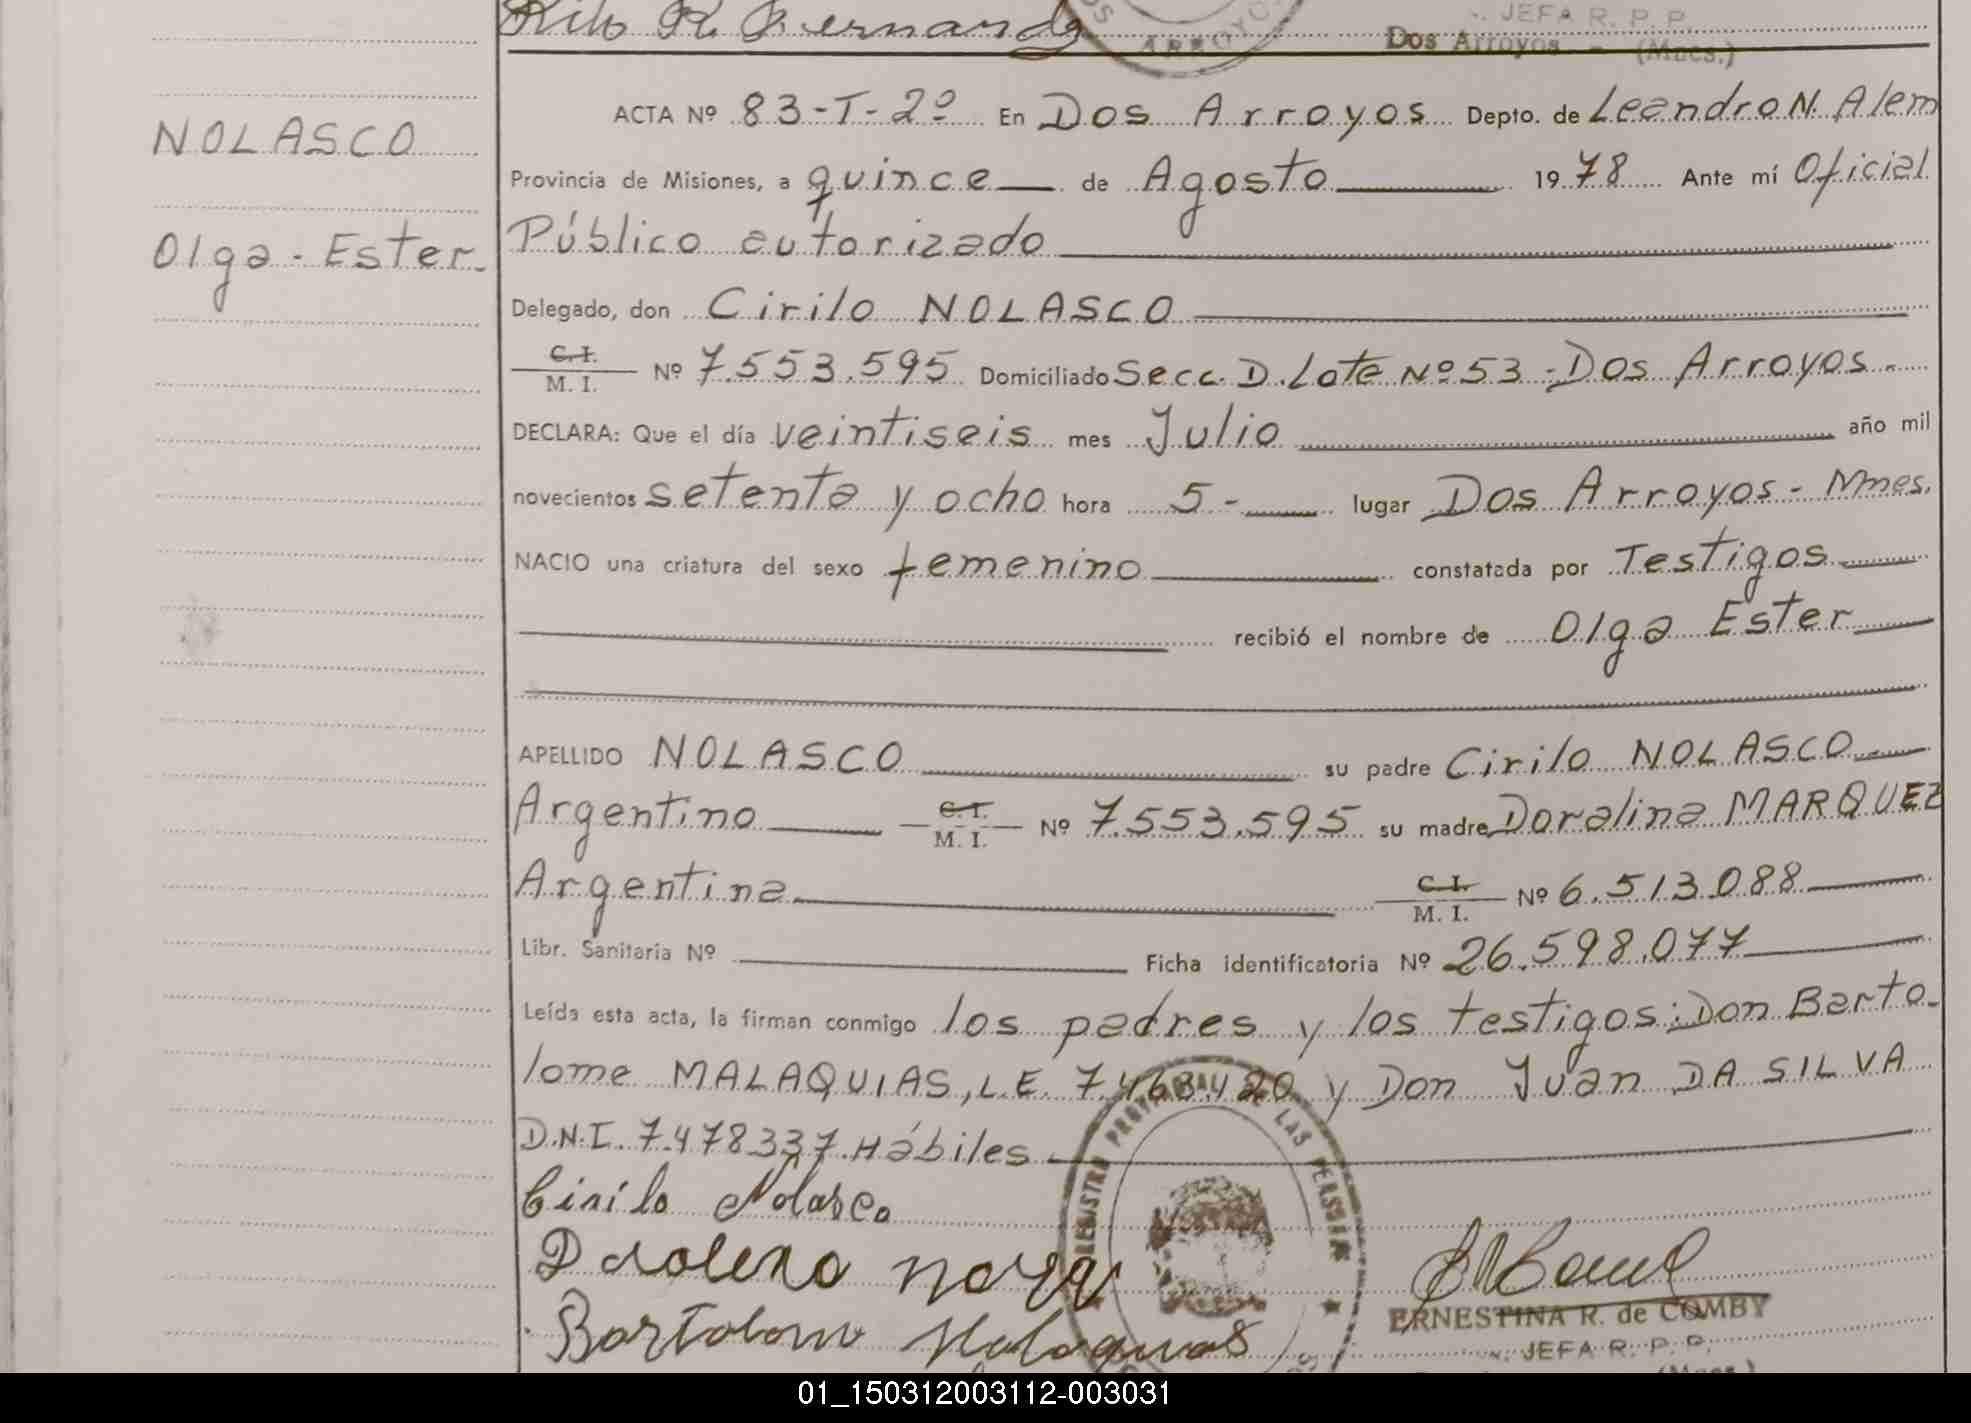 Rito R. Fernandz
ARROYOS
JEFA R. P. P.
Dos Arroyos - (Mnes.)
NOLASCO
Olga - Ester.
ACTA Nº 83-T-2º En Dos Arroyos Depto. de Leandro N. Alem
Provincia de Misiones, a quince de Agosto 1978 Ante mí Oficial
Público autorizado
Delegado, don Cirilo NOLASCO
C.I. M. I. Nº 7.553.595 Domiciliado Secc. D. Lote Nº 53 - Dos Arroyos.
DECLARA: Que el día veintiseis mes Julio año mil
novecientos setenta y ocho hora 5- lugar Dos Arroyos - Mnes.
NACIO una criatura del sexo femenino constatada por Testigos
recibió el nombre de Olga Ester
APELLIDO NOLASCO su padre Cirilo NOLASCO
Argentino C.I. M. I. Nº 7.553.595 su madre Doralina MARQUEZ
Argentina C.I. M. I. Nº 6.513.088
Libr. Sanitaria Nº Ficha identificatoria Nº 26.598.077
Leída esta acta, la firman conmigo los padres y los testigos: Don Barto-
lome MALAQUIAS, L.E. 7.463.420 y Don Juan DA SILVA
D.N.I. 7.478.337. Hábiles
REGISTRO PROVINCIAL DE LAS PERSONAS
Cirilo Nolasco
Bartolom Malaquias
ERNESTINA R. de COMBY
JEFA R. P. P.
(Mnes.)
01_150312003112-003031